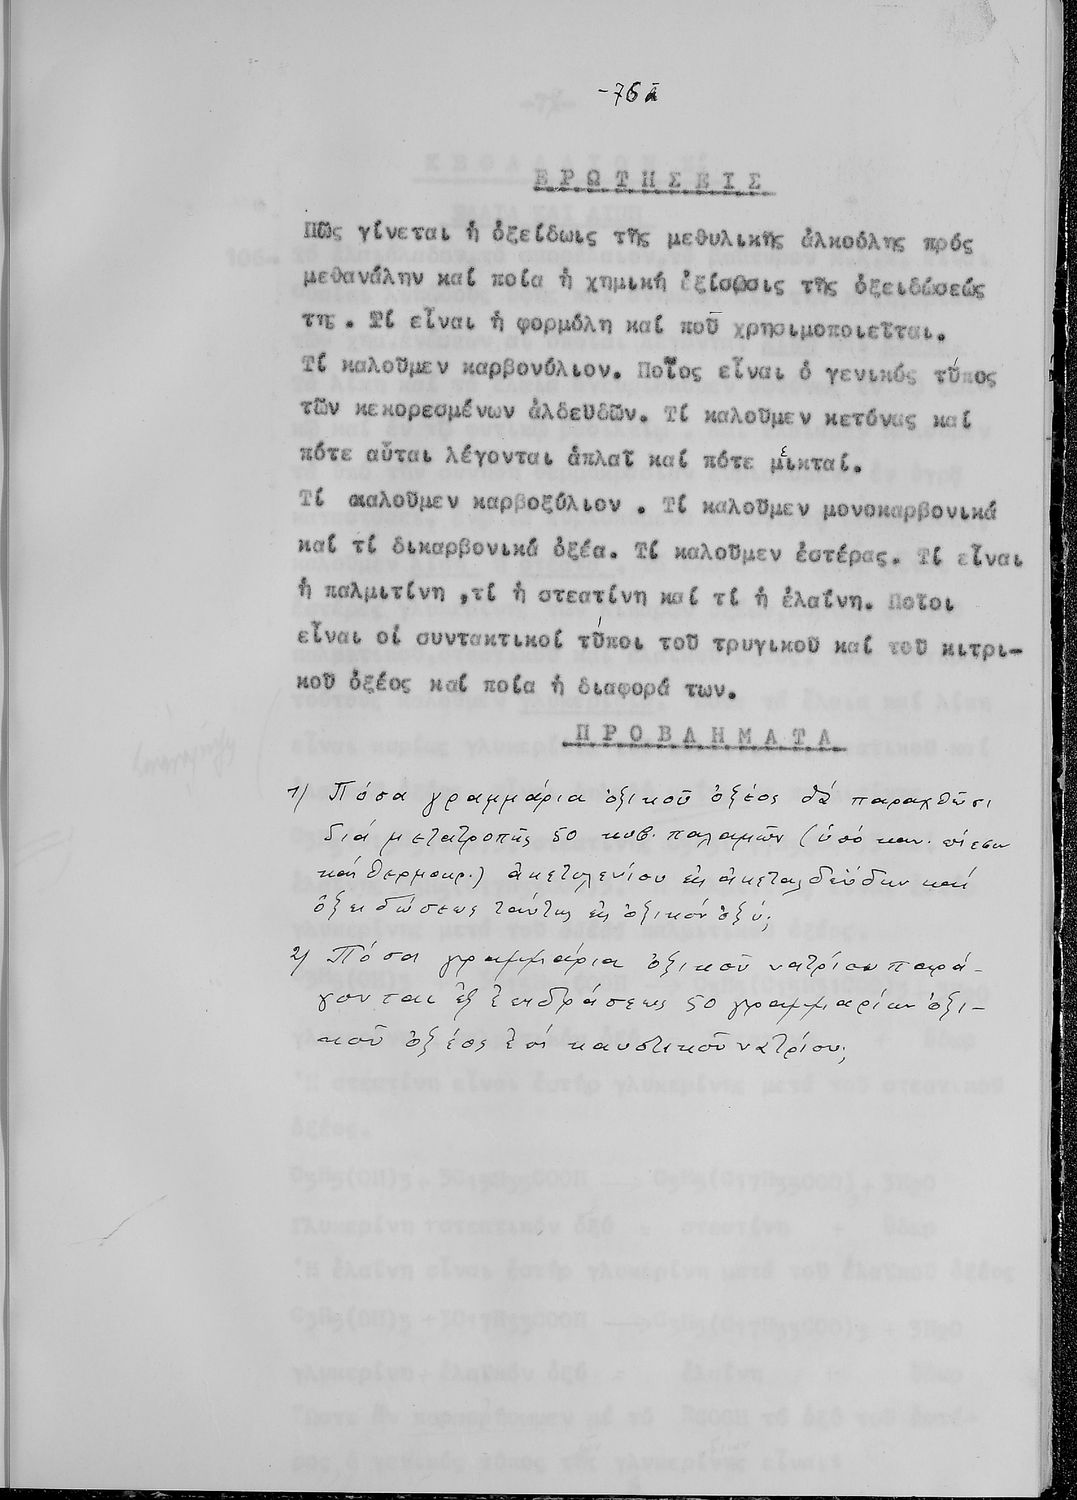 -76α
ΕΡΩΤΗΣΕΙΣ
Πῶς γίνεται ἡ ὀξείδωις τῆς μεθυλικῆς ἀλκοόλης πρός
μεθανάλην καί ποία ἡ χημική ἐξίσωσις τῆς ὀξειδώσεώς
της . Τί εἶναι ἡ φορμόλη καί ποῦ χρησιμοποιεῖται.
Τί καλοῦμεν καρβονύλιον. Ποῖος εἶναι ὁ γενικός τύπος
τῶν κεκορεσμένων ἀλδευδῶν. Τί καλοῦμεν κετόνας καί
πότε αὗται λέγονται ἁπλαῖ καί πότε μικταί.
Τί καλοῦμεν καρβοξύλιον . Τί καλοῦμεν μονοκαρβονικά
καί τί δικαρβονικά ὀξέα. Τί καλοῦμεν ἐστέρας. Τί εἶναι
ἡ παλμιτίνη ,τί ἡ στεατίνη καί τί ἡ ἐλαΐνη. Ποῖοι
εἶναι οἱ συντακτικοί τύποι τοῦ τρυγικοῦ καί τοῦ κιτρι-
κοῦ ὀξέος καί ποία ἡ διαφορά των.
ΠΡΟΒΛΗΜΑΤΑ
1) Πόσα γραμμάρια ὀξικοῦ ὀξέος θά παραχθῶσι
διά μετατροπῆς 50 κυβ. παλαμῶν (ὑπό καν. πίεσιν
καί θερμοκρ.) ἀκετυλενίου εἰς ἀκεταλδεύδην καί
ὀξειδώσεως ταύτης εἰς ὀξικόν ὀξύ;
2) Πόσα γραμμάρια ὀξικοῦ νατρίου παρά-
γονται ἐξ ἐπιδράσεως 50 γραμμαρίων ὀξι-
κοῦ ὀξέος ἐπί καυστικοῦ νατρίου;